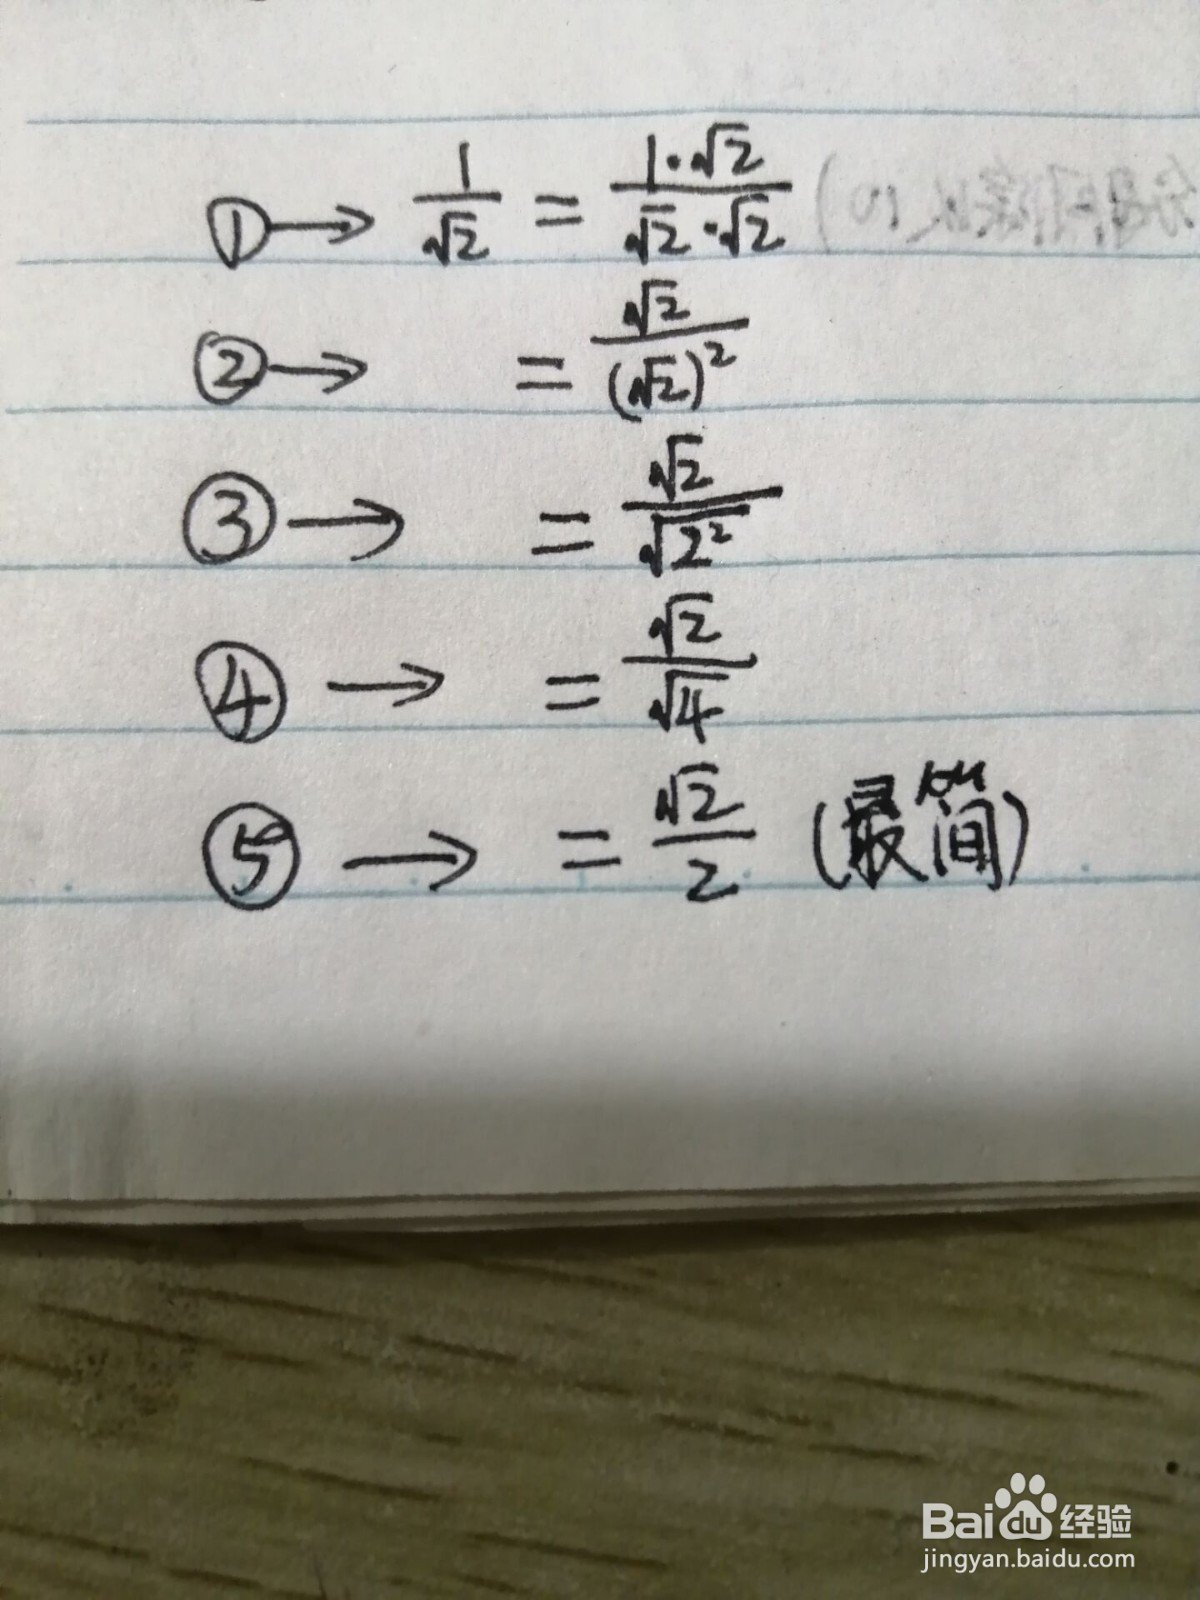 ①→ 1/√2 = 1·√2/√2·√2
②→ = √2/(√2)²
③→ = √2/√2²
④→ = √2/√4
⑤→ = √2/2 (最简)
Baidu经验
jingyan.baidu.com